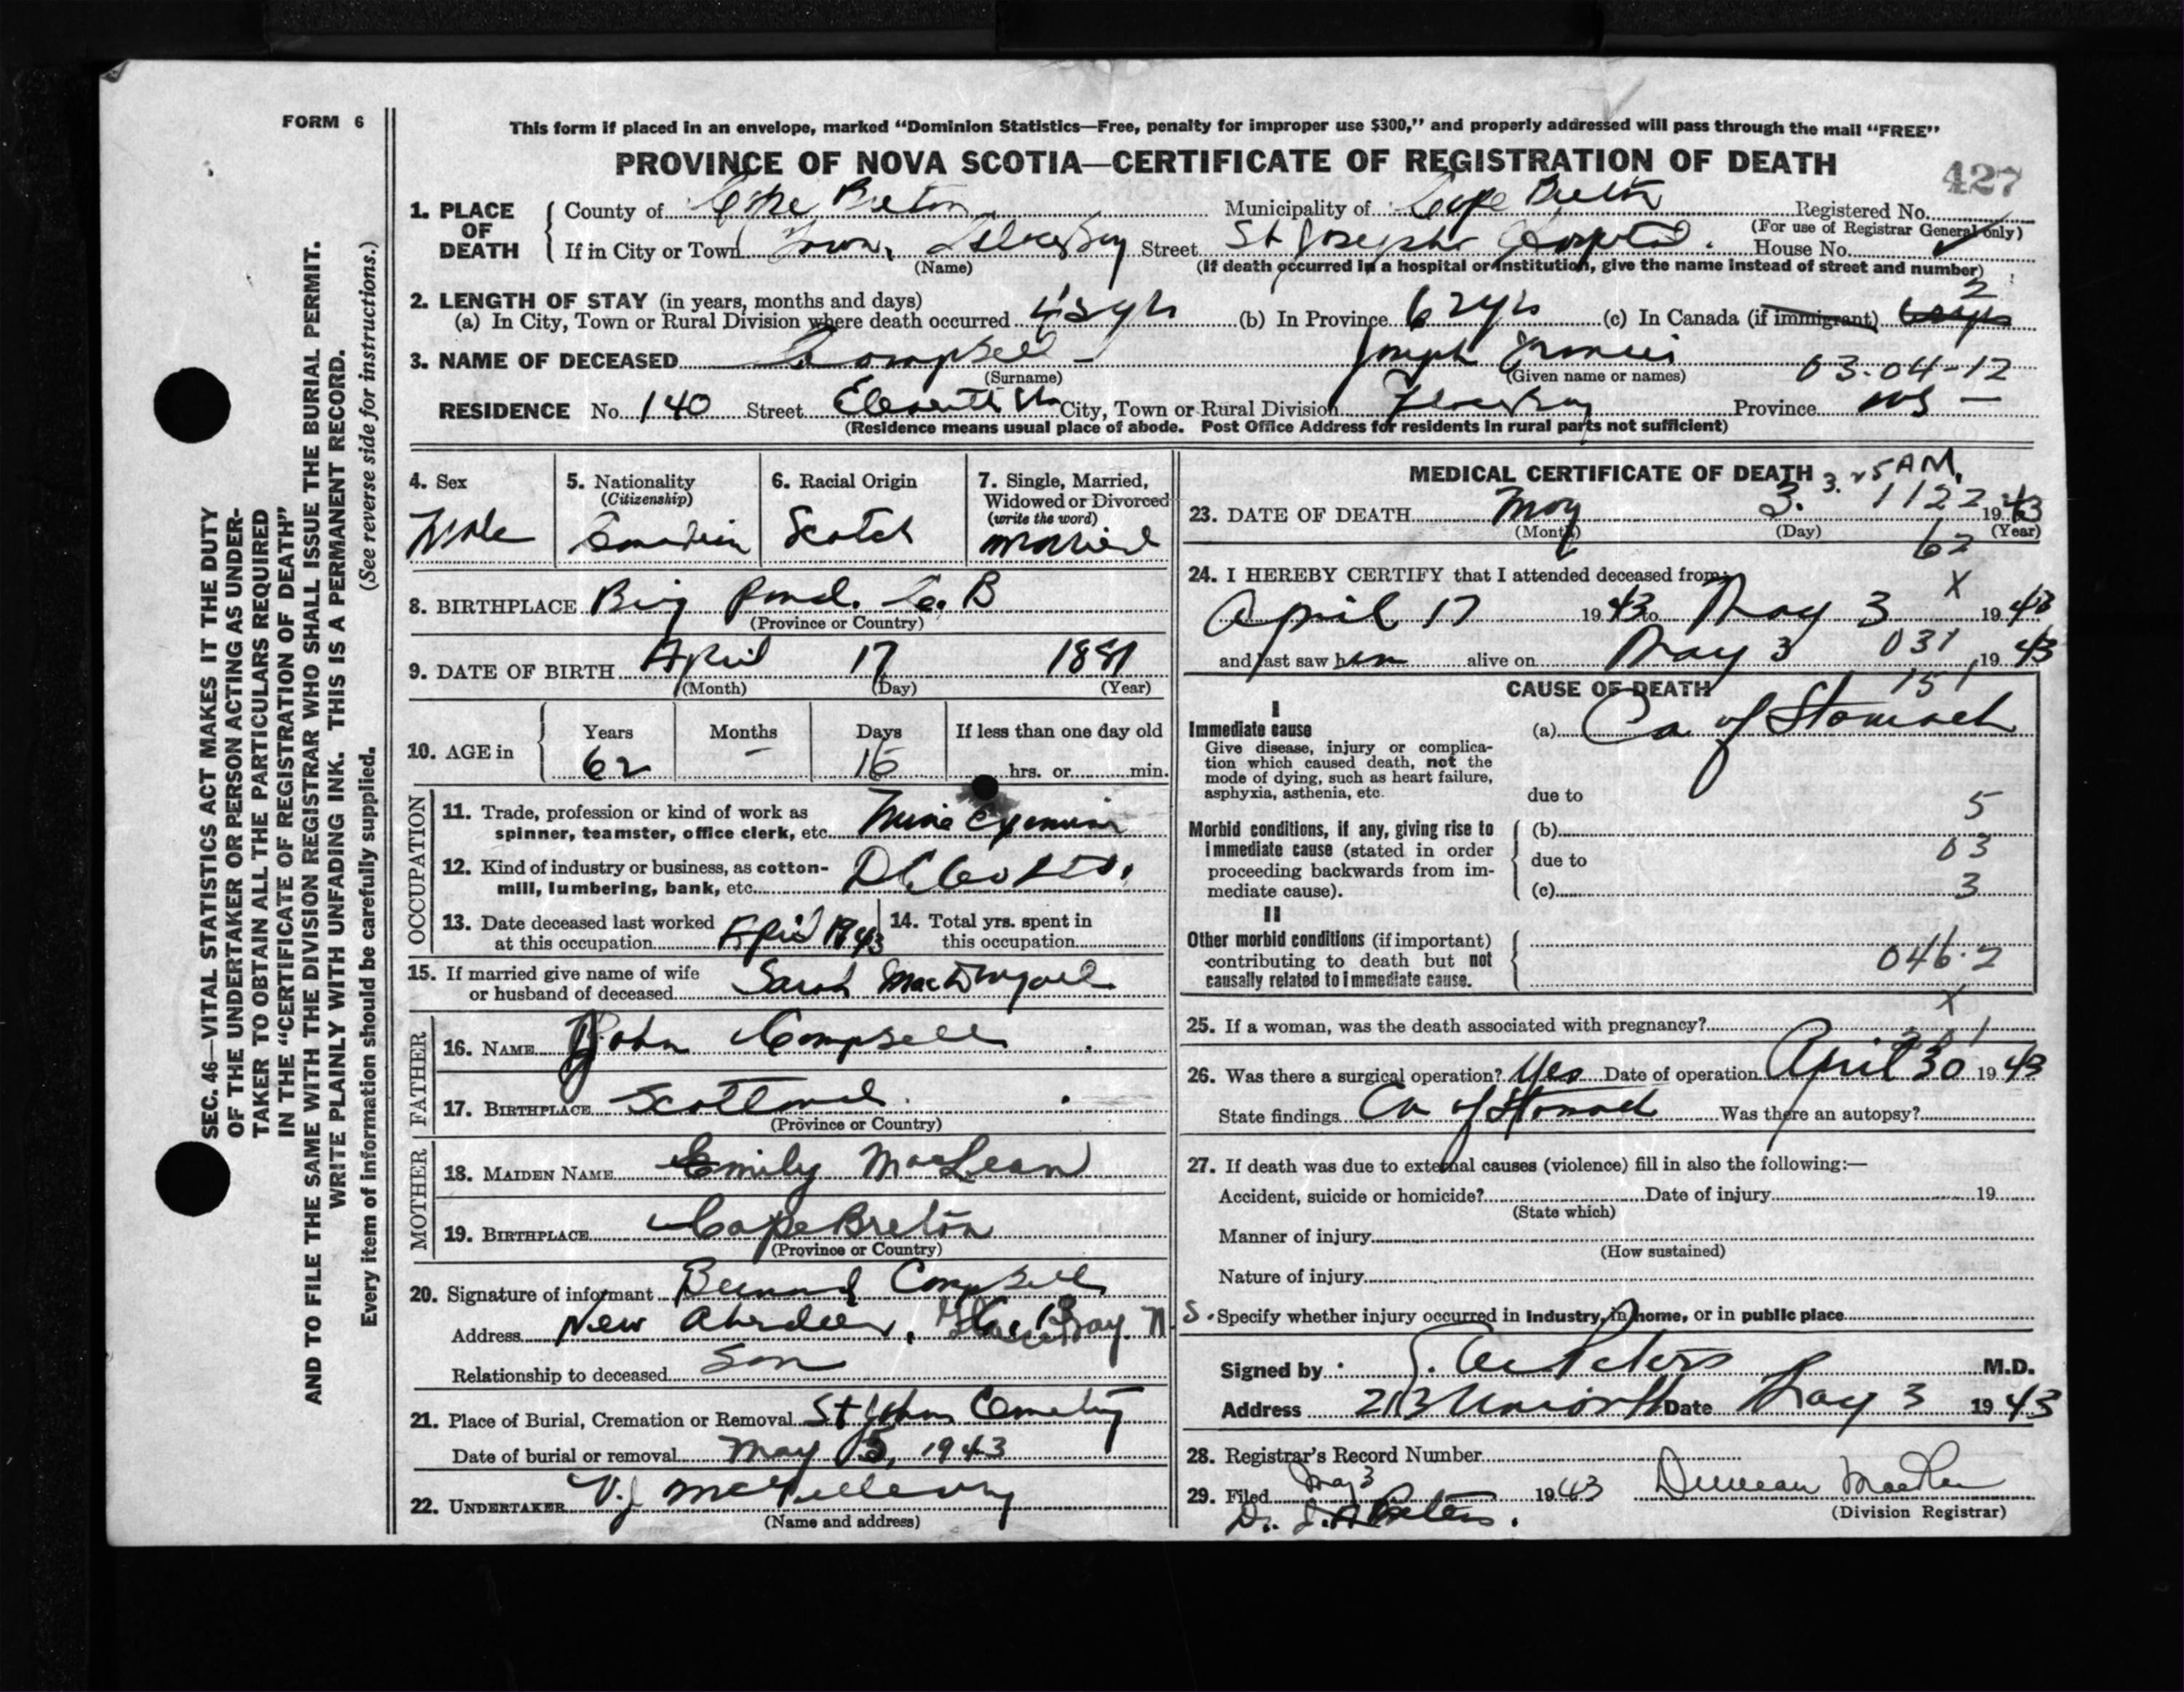 FORM 6
This form if placed in an envelope, marked “Dominion Statistics—Free, penalty for improper use $300,” and properly addressed will pass through the mail “FREE”
PROVINCE OF NOVA SCOTIA—CERTIFICATE OF REGISTRATION OF DEATH
427
1. PLACE OF DEATH
County of Cape Breton Municipality of Cape Breton Registered No.
(For use of Registrar General only)
If in City or Town Town, Glace Bay Street St Josephs Hospital. House No.
(Name) (If death occurred in a hospital or institution, give the name instead of street and number)
2. LENGTH OF STAY (in years, months and days)
(a) In City, Town or Rural Division where death occurred (b) In Province 62 yrs (c) In Canada (if immigrant)
3. NAME OF DECEASED Campbell - Joseph Francis
(Surname) (Given name or names) 03-04-12
RESIDENCE No. 140 Street City, Town or Rural Division Glace Bay Province NS —
(Residence means usual place of abode. Post Office Address for residents in rural parts not sufficient)
4. Sex Male
5. Nationality (Citizenship) Canadian
6. Racial Origin Scotch
7. Single, Married, Widowed or Divorced (write the word) Married
8. BIRTHPLACE Big Pond. C. B
(Province or Country)
9. DATE OF BIRTH April 17 1881
(Month) (Day) (Year)
10. AGE in Years 62 Months – Days 16 If less than one day old hrs. or min.
OCCUPATION
11. Trade, profession or kind of work as spinner, teamster, office clerk, etc. Mine Examiner
12. Kind of industry or business, as cotton-mill, lumbering, bank, etc.
13. Date deceased last worked at this occupation April 1943
14. Total yrs. spent in this occupation
15. If married give name of wife or husband of deceased Sarah MacDougall
FATHER
16. NAME John Campbell
17. BIRTHPLACE Scotland
(Province or Country)
MOTHER
18. MAIDEN NAME Emily MacLean
19. BIRTHPLACE Cape Breton
(Province or Country)
20. Signature of informant Bernard Campbell
Address New Aberdeen, Glace Bay. N.S.
Relationship to deceased Son
21. Place of Burial, Cremation or Removal St Johns Cemetry
Date of burial or removal May 5, 1943
22. UNDERTAKER V.J McGillivray
(Name and address)
MEDICAL CERTIFICATE OF DEATH 3.25 AM.
23. DATE OF DEATH May 3. 1122 1943
(Month) (Day) (Year)
62
24. I HEREBY CERTIFY that I attended deceased from:
X
April 17 1943 to May 3 1943
and last saw him alive on May 3 031 1943
CAUSE OF DEATH 151
I
Immediate cause (a) Ca of Stomach
Give disease, injury or complication which caused death, not the mode of dying, such as heart failure, asphyxia, asthenia, etc.
due to
5
Morbid conditions, if any, giving rise to immediate cause (stated in order proceeding backwards from immediate cause).
(b)
due to 03
(c) 3
II
Other morbid conditions (if important) contributing to death but not causally related to immediate cause.
046.2
X
25. If a woman, was the death associated with pregnancy?
26. Was there a surgical operation? Yes Date of operation April 30 1943
State findings Ca of Stomach Was there an autopsy?
27. If death was due to external causes (violence) fill in also the following:—
Accident, suicide or homicide? Date of injury 19
(State which)
Manner of injury
(How sustained)
Nature of injury
Specify whether injury occurred in industry, in home, or in public place
Signed by Peters M.D.
Address 213 Union St Date May 3 1943
28. Registrar's Record Number
29. Filed May 3 1943 Duncan
(Division Registrar)
Dr. J.A Peters.
SEC. 46—VITAL STATISTICS ACT MAKES IT THE DUTY
OF THE UNDERTAKER OR PERSON ACTING AS UNDER-
TAKER TO OBTAIN ALL THE PARTICULARS REQUIRED
IN THE “CERTIFICATE OF REGISTRATION OF DEATH”
AND TO FILE THE SAME WITH THE DIVISION REGISTRAR WHO SHALL ISSUE THE BURIAL PERMIT.
WRITE PLAINLY WITH UNFADING INK. THIS IS A PERMANENT RECORD.
Every item of information should be carefully supplied. (See reverse side for instructions.)